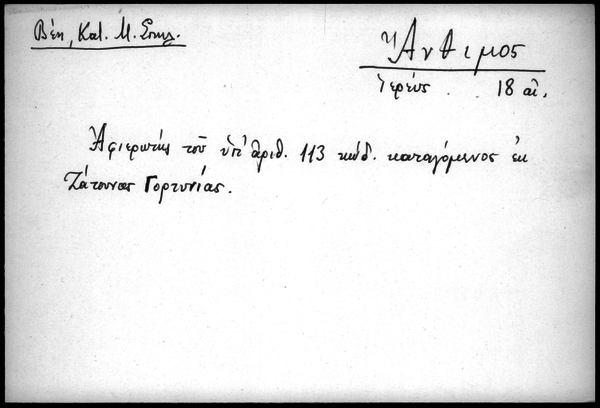 Βέη, Κατ. Μ. Σπηλ.
Ἄνθιμος
Ἱερεύς . . 18 αἰ.
Ἀφιερωτὴς τοῦ ὑπ' ἀριθ. 113 κώδ. καταγόμενος ἐκ
Ζάτουνας Γορτυνίας.